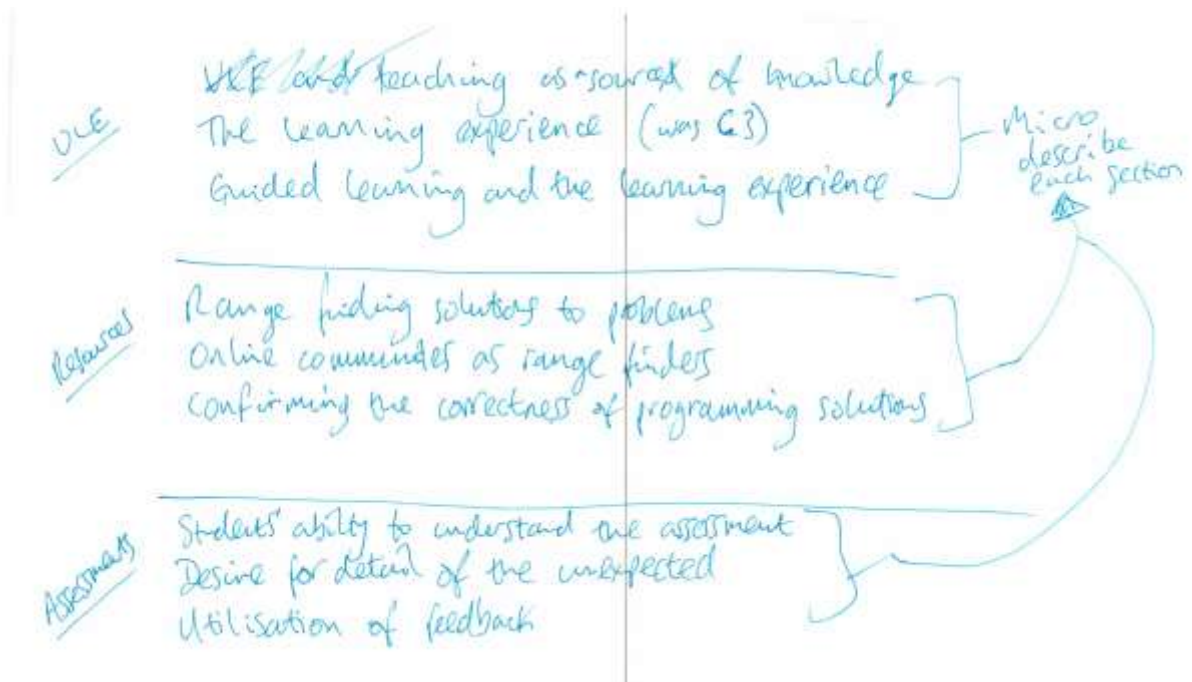 VLE
VLE and teaching as source of knowledge
The learning experience (was C3)
Guided learning and the learning experience
Micro
describe
each section
Resources
Range finding solutions to problems
Online communities as range finders
Confirming the correctness of programming solutions
Assessments
Students' ability to understand the assessment
Desire for detail of the unexpected
Utilisation of feedback